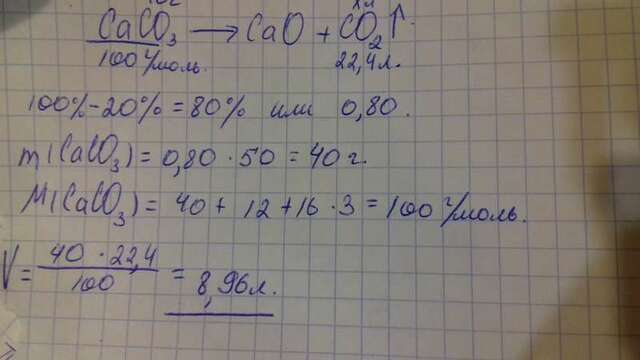 CaCO₃ → CaO + CO₂↑
100 г/моль. 22,4 л.
100% - 20% = 80% или 0,80.
m(CaCO₃) = 0,80 · 50 = 40 г.
M(CaCO₃) = 40 + 12 + 16 · 3 = 100 г/моль.
V = 40 · 22,4 / 100 = 8,96 л.